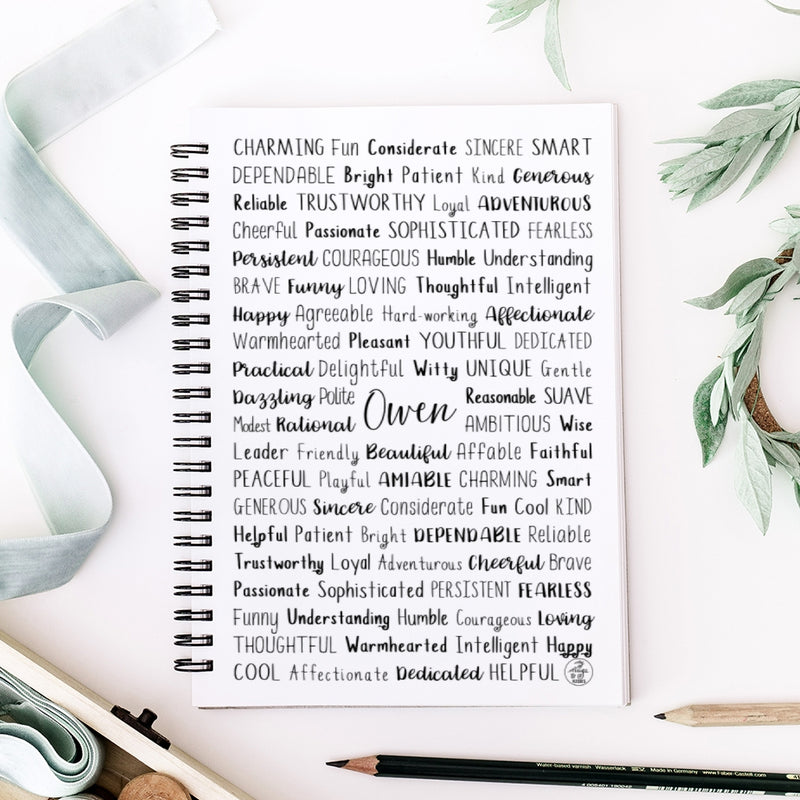 CHARMING Fun Considerate SINCERE SMART
DEPENDABLE Bright Patient Kind Generous
Reliable TRUSTWORTHY Loyal ADVENTUROUS
Cheerful Passionate SOPHISTICATED FEARLESS
Persistent COURAGEOUS Humble Understanding
BRAVE Funny LOVING Thoughtful Intelligent
Happy Agreeable Hard-working Affectionate
Warmhearted Pleasant YOUTHFUL DEDICATED
Practical Delightful Witty UNIQUE Gentle
Dazzling Polite Reasonable SUAVE
Owen
Modest Rational AMBITIOUS Wise
Leader Friendly Beautiful Affable Faithful
PEACEFUL Playful AMIABLE CHARMING Smart
GENEROUS Sincere Considerate Fun Cool KIND
Helpful Patient Bright DEPENDABLE Reliable
Trustworthy Loyal Adventurous Cheerful Brave
Passionate Sophisticated PERSISTENT FEARLESS
Funny Understanding Humble Courageous Loving
THOUGHTFUL Warmhearted Intelligent Happy
COOL Affectionate Dedicated HELPFUL
Water-based varnish Wasserlack Made in Germany www.Faber-Castell.com